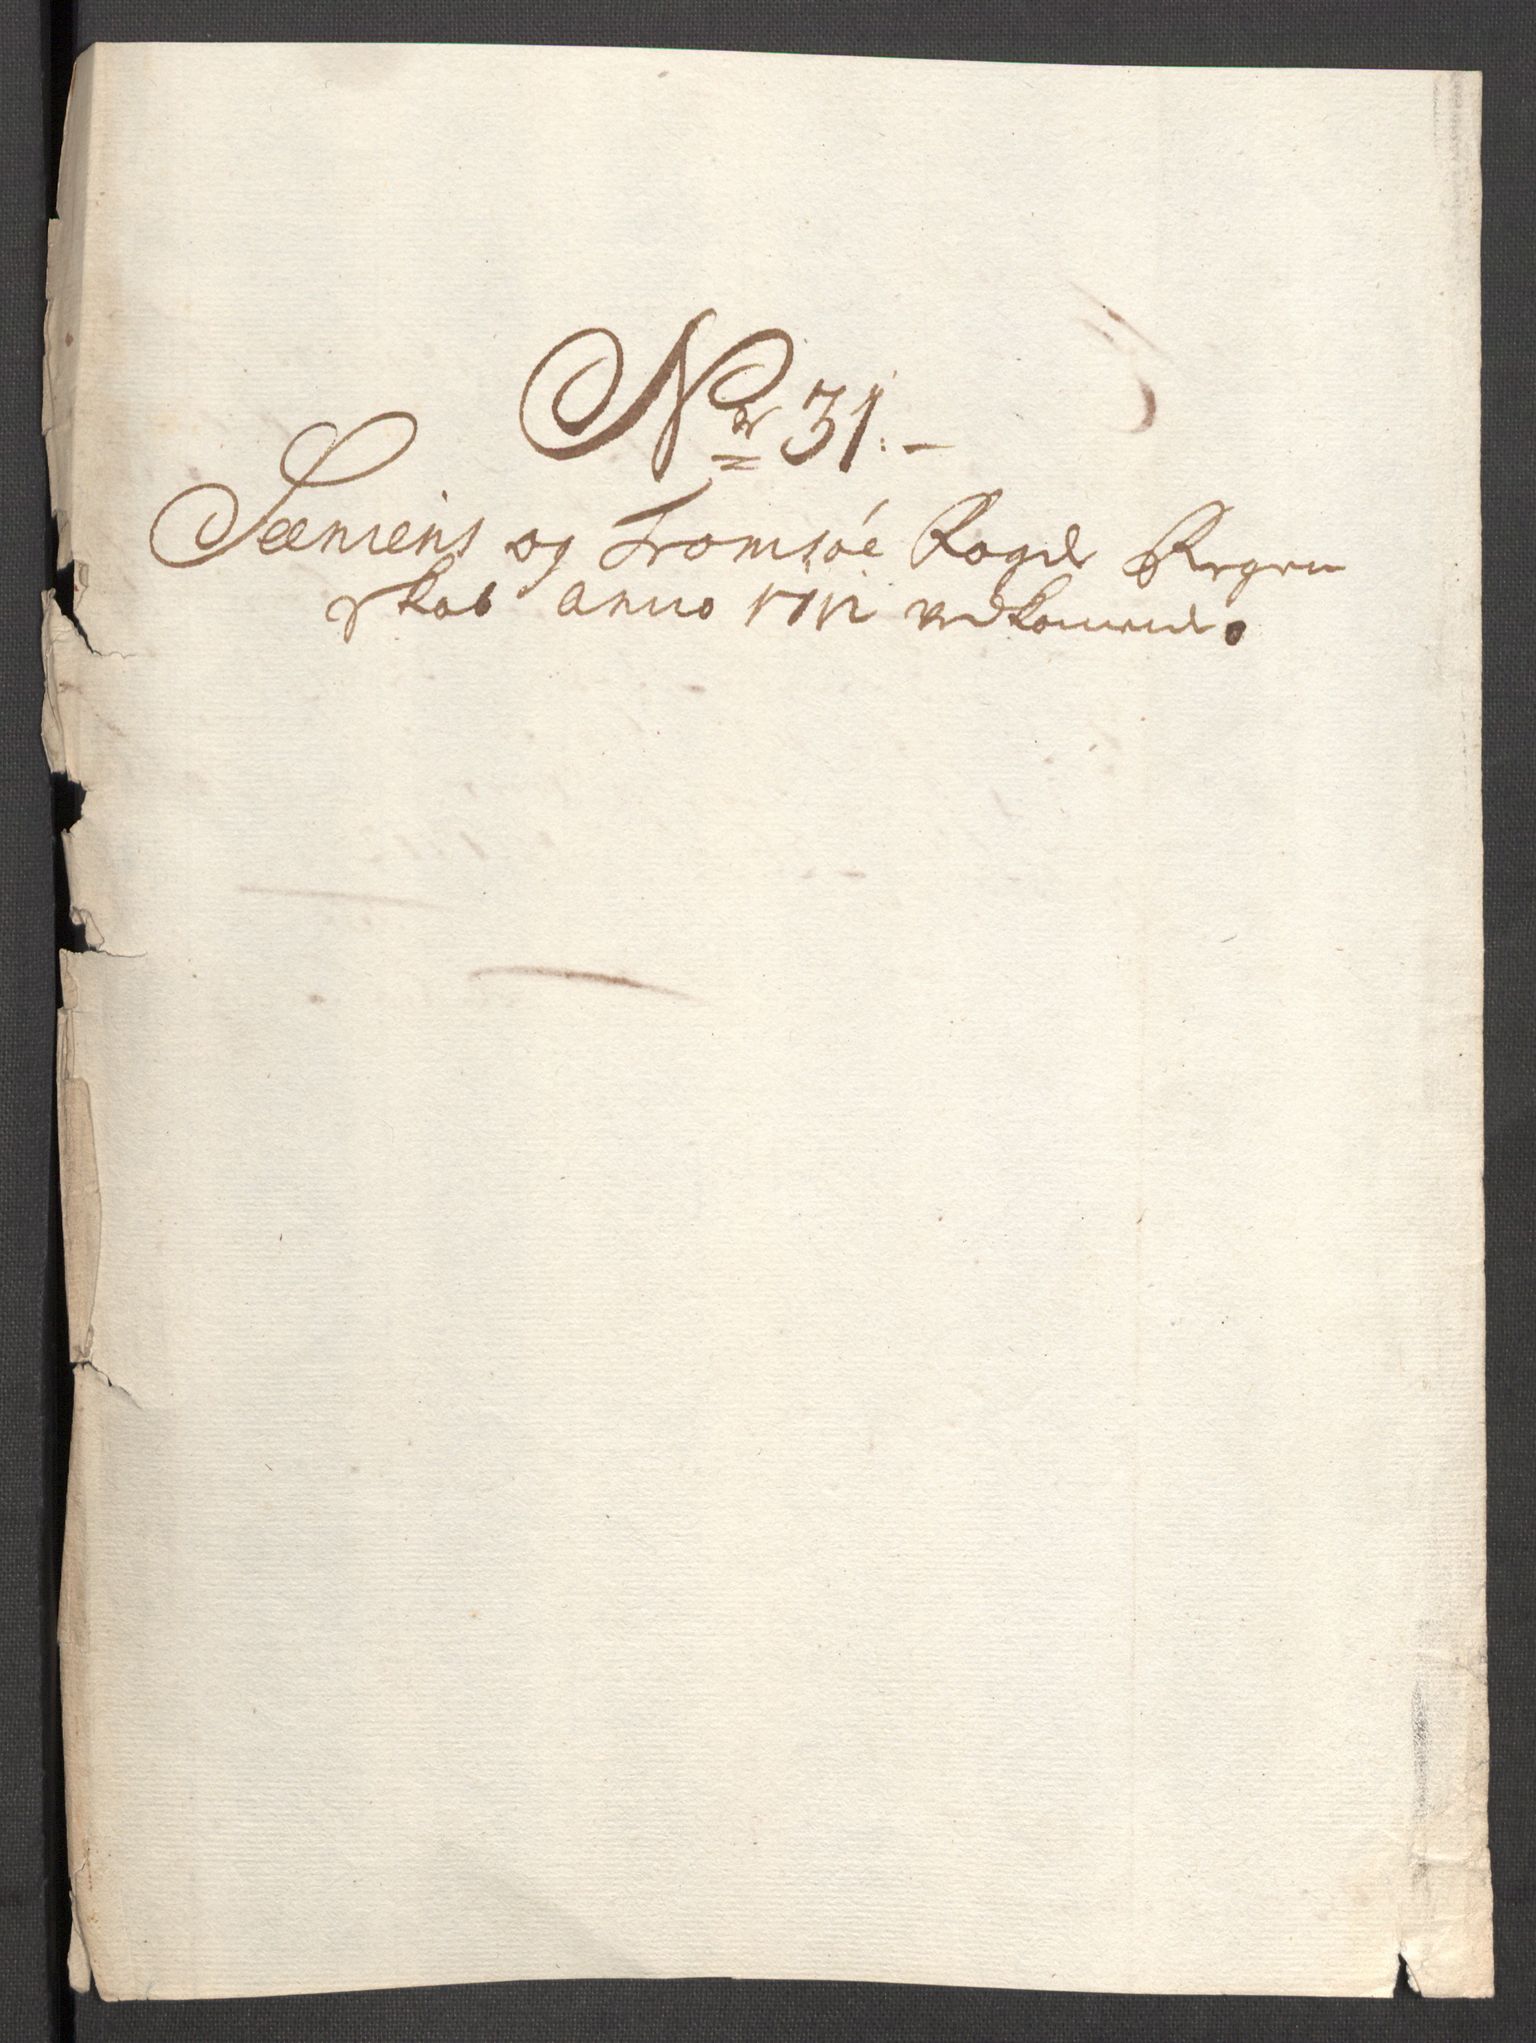 Nr 31.
Sæniens og Tromsøe Fogd Regen
skab Anno 1712 vedkomend.